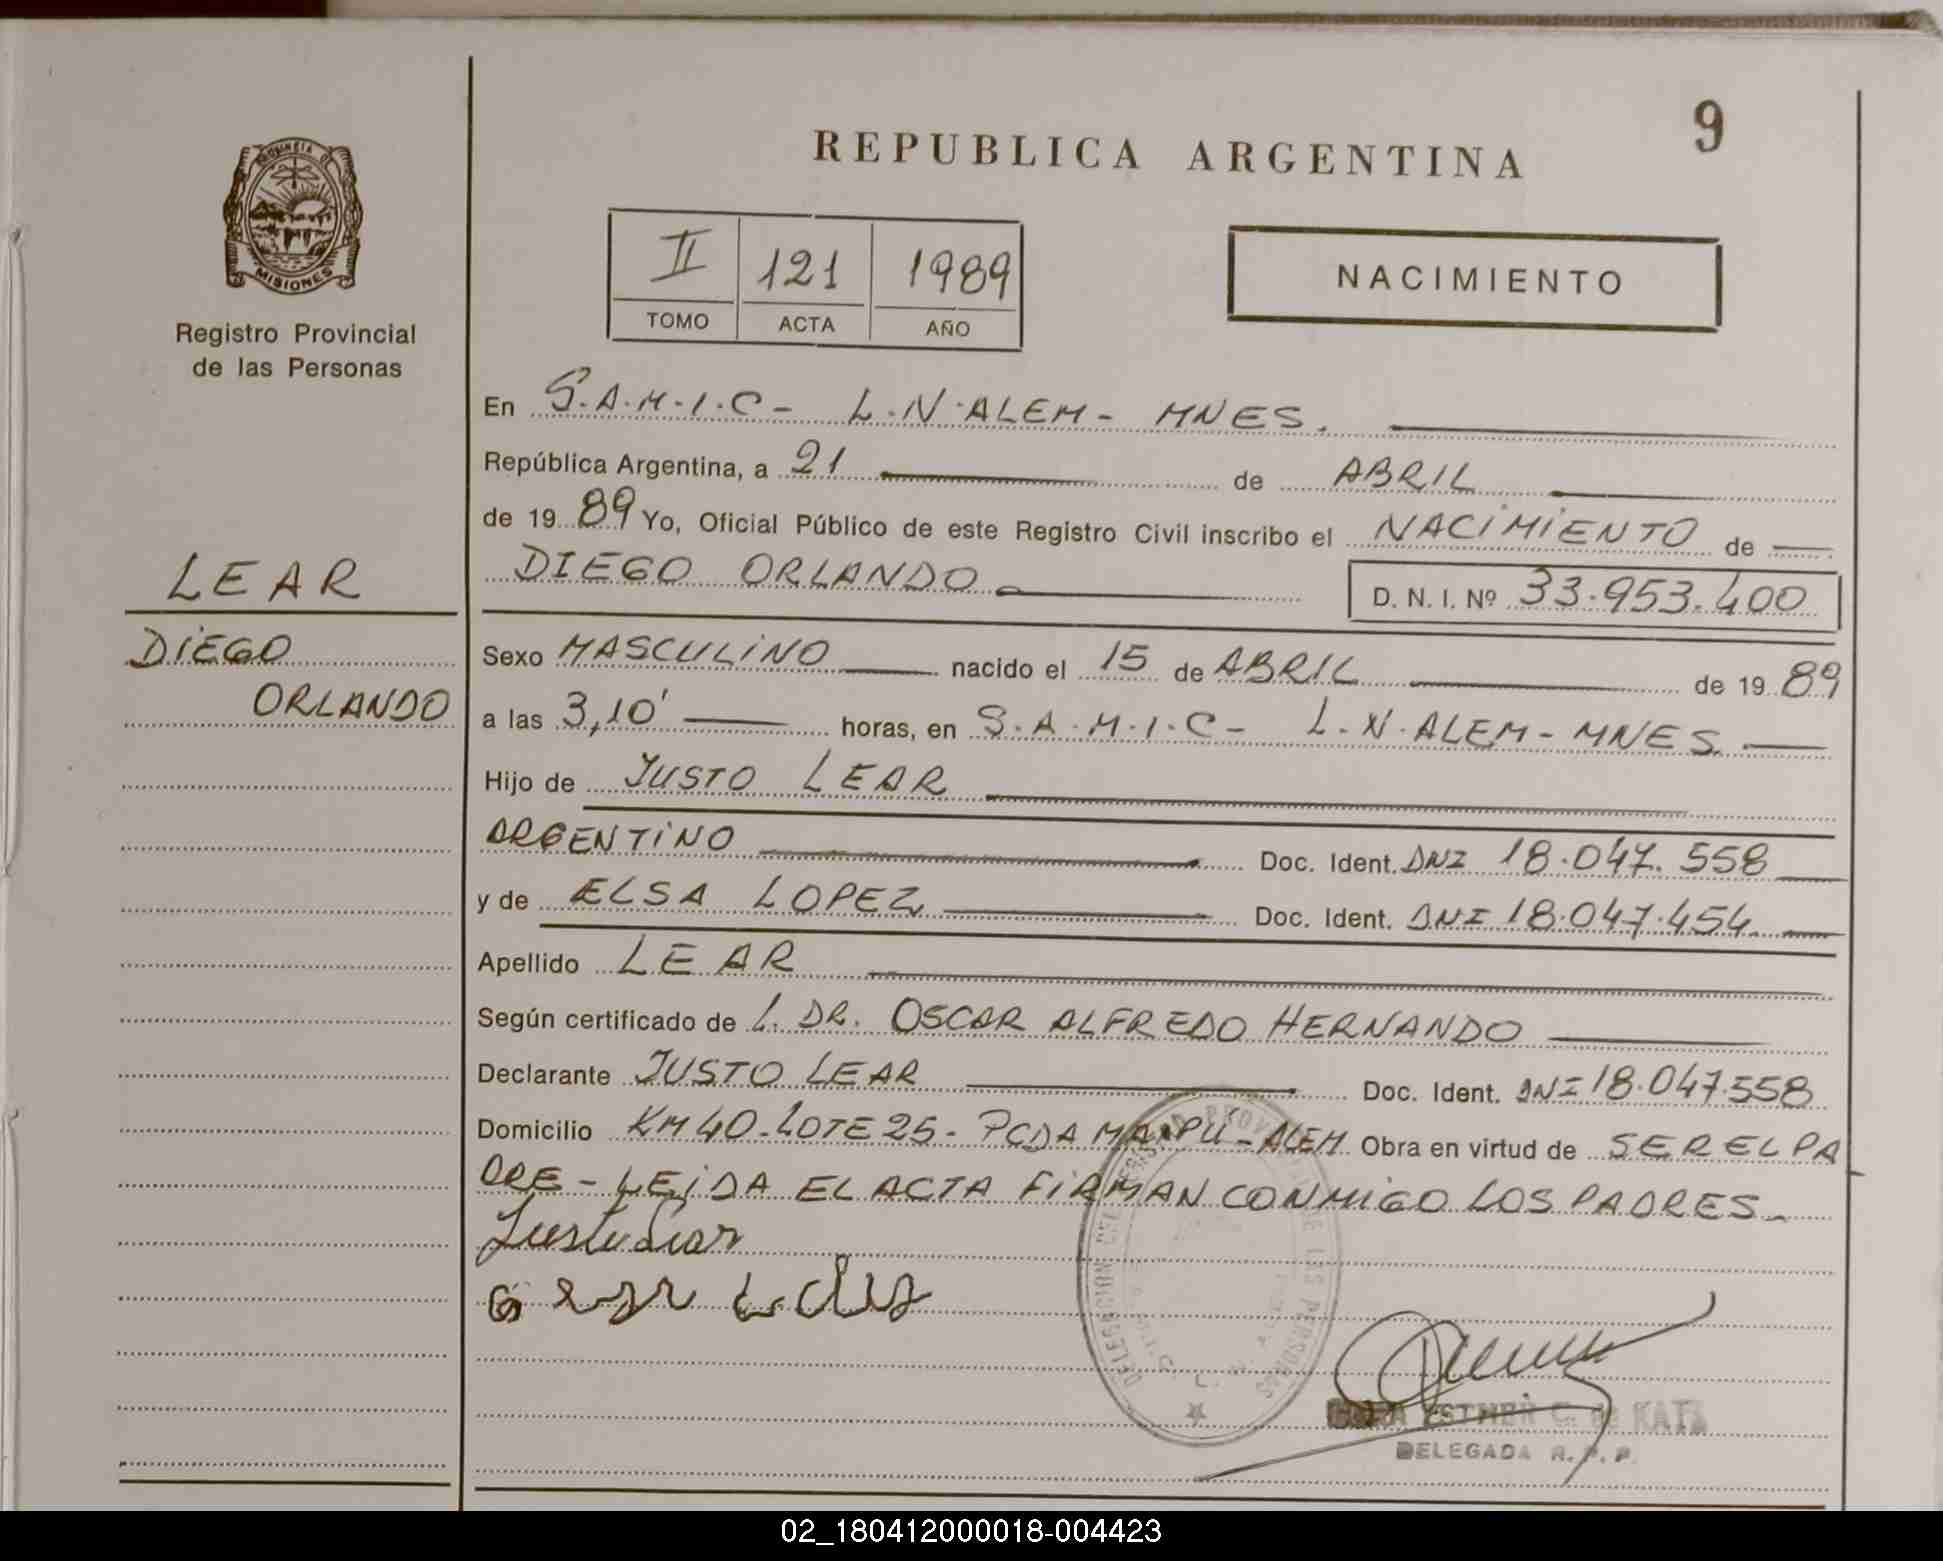 9
REPUBLICA ARGENTINA
PROVINCIA DE
MISIONES
Registro Provincial
de las Personas
II 121 1989
TOMO ACTA AÑO
NACIMIENTO
En S.A.M.I.C- L.N.ALEM- MNES.
República Argentina, a 21 de ABRIL
de 1989 Yo, Oficial Público de este Registro Civil inscribo el NACIMIENTO de
DIEGO ORLANDO
D. N. I. Nº 33.953.400
LEAR
DIEGO
ORLANDO
Sexo MASCULINO nacido el 15 de ABRIL de 1989
a las 3,10' horas, en S.A.M.I.C- L.N.ALEM-MNES
Hijo de JUSTO LEAR
ARGENTINO Doc. Ident. DNI 18.047.558
y de ELSA LOPEZ Doc. Ident. DNI 18.047.454
Apellido LEAR
Según certificado de L. DR. OSCAR ALFREDO HERNANDO
Declarante JUSTO LEAR Doc. Ident. DNI 18.047.558
Domicilio KM 40-LOTE 25- PCDA MAIPU-ALEM Obra en virtud de SER EL PA
DRE - LEIDA EL ACTA FIRMAN CONMIGO LOS PADRES-
Justo Lear
DELEGACION DEL REGISTRO PROVINCIAL DE LAS PERSONAS
ESTHER C. de KATZ
DELEGADA R. P. P.
02_180412000018-004423